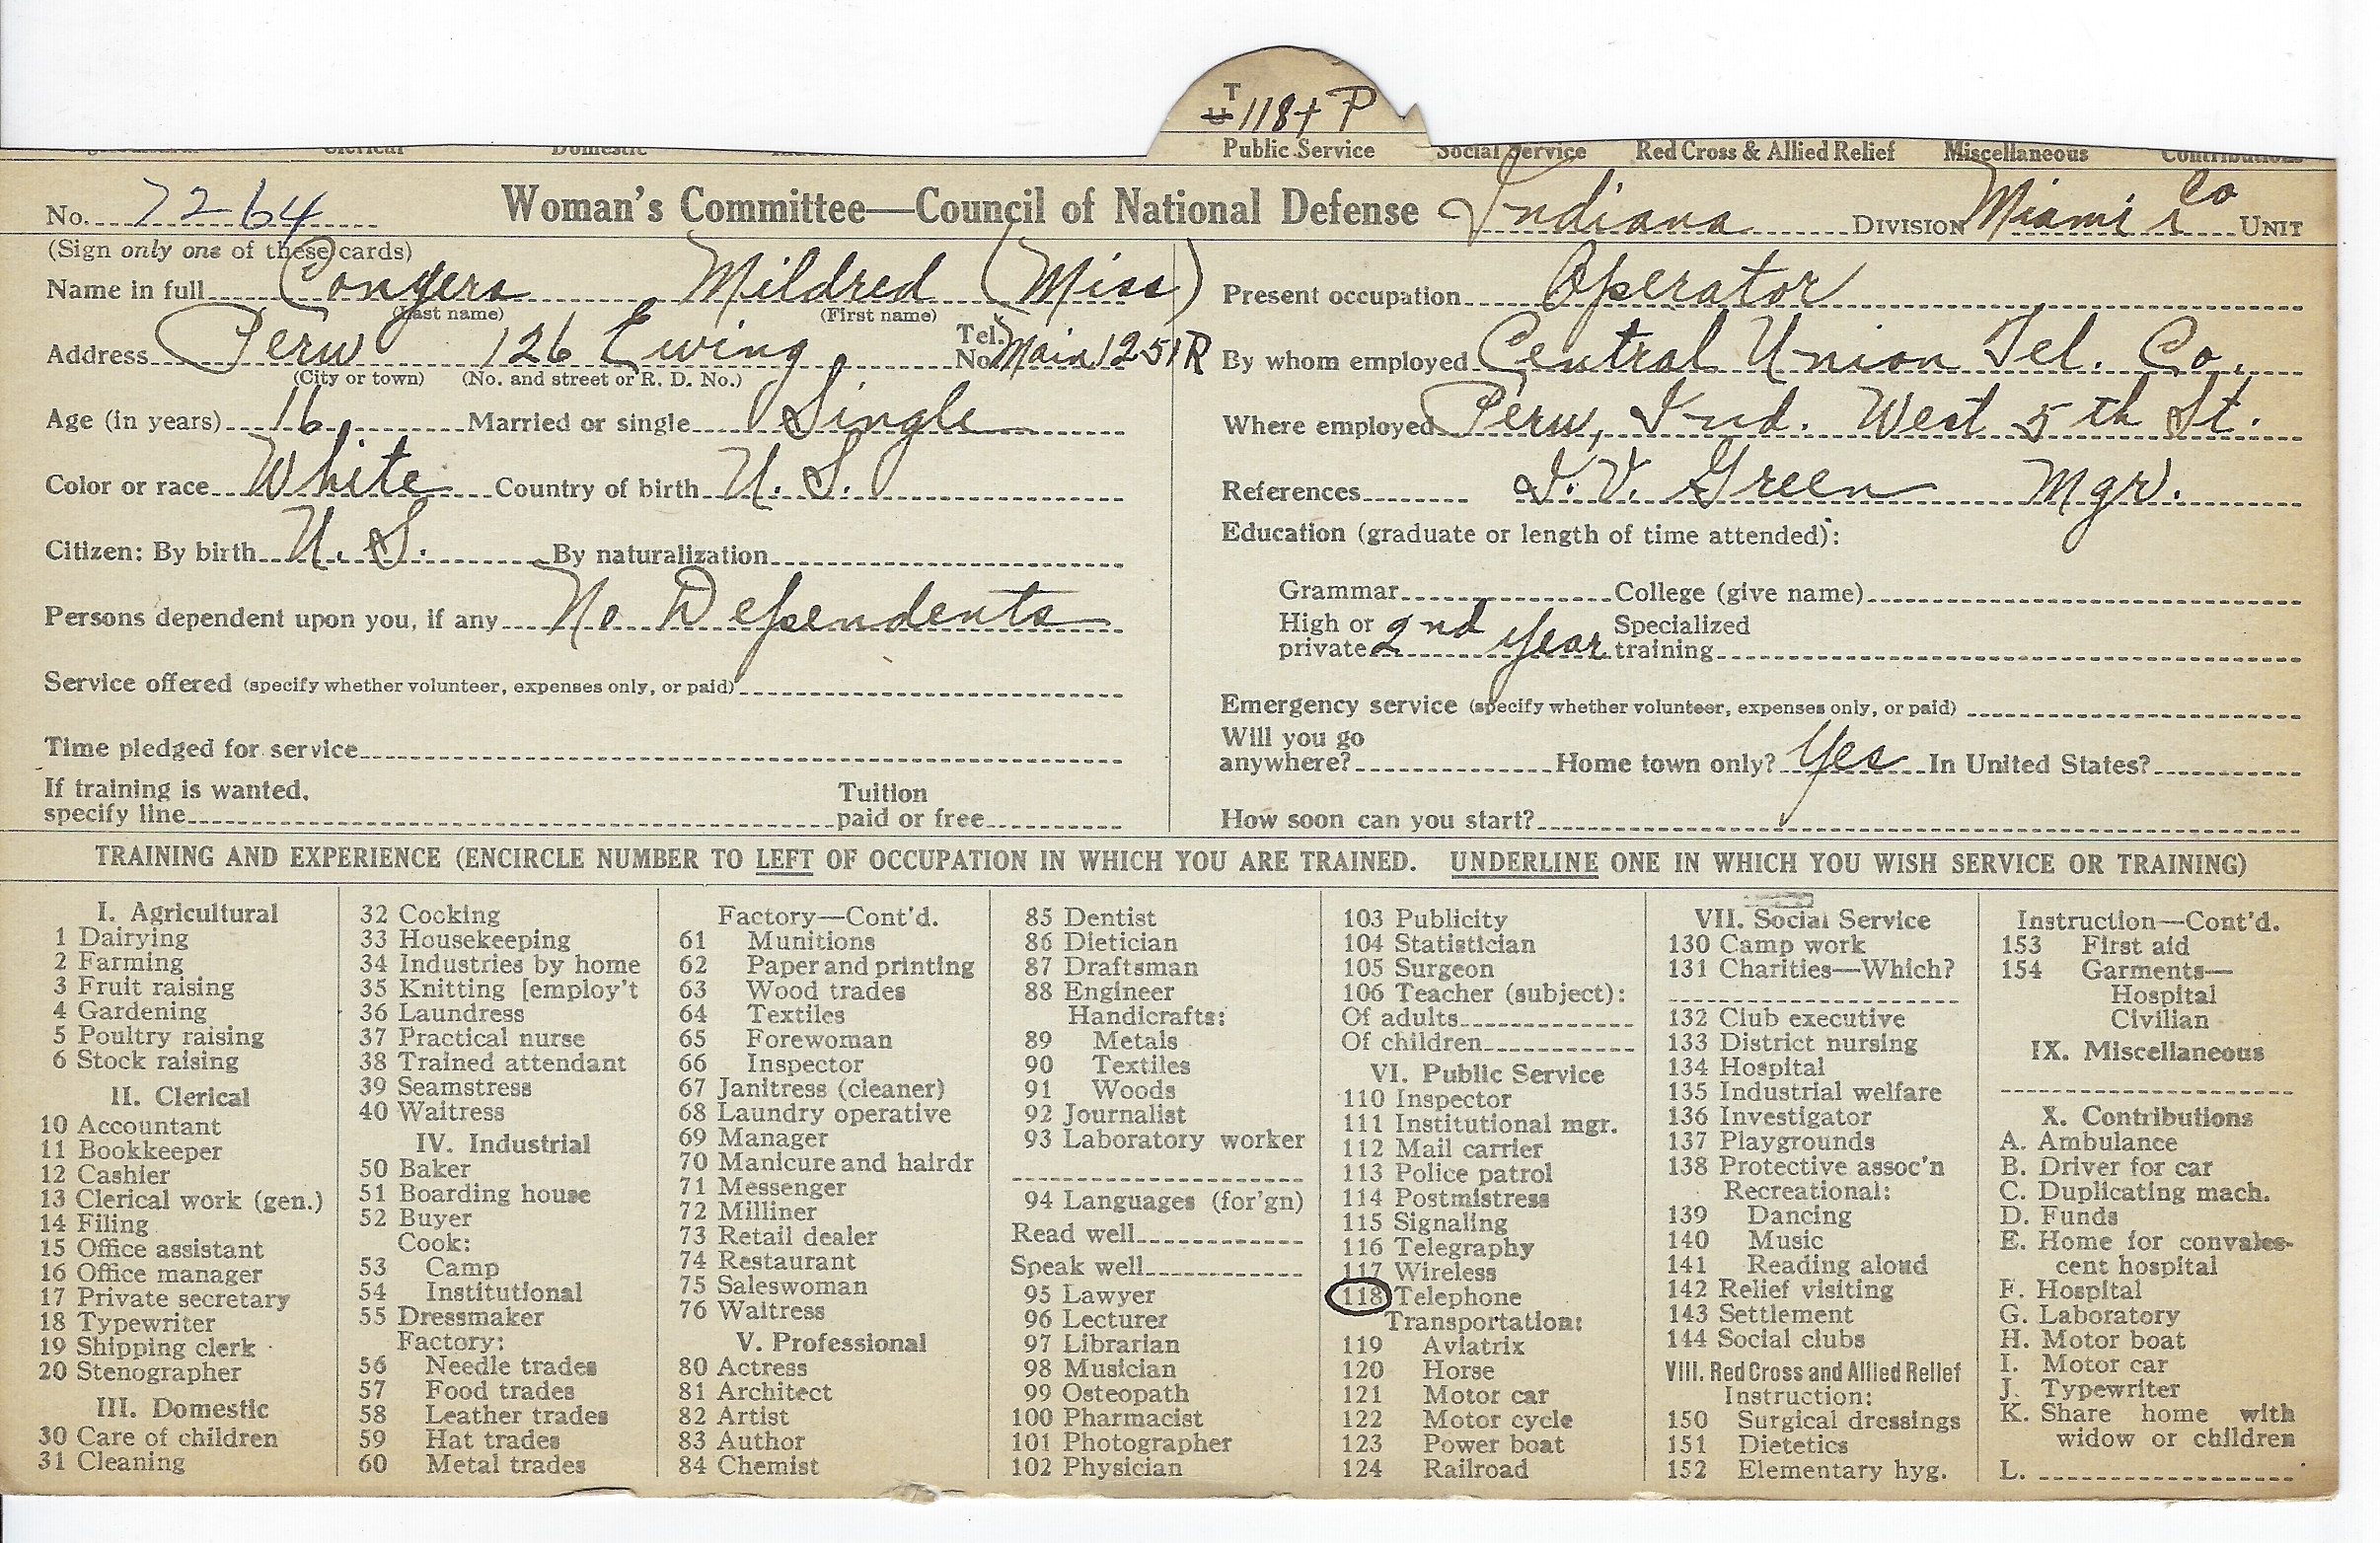 T
U 118+ P
Public Service Social Service Red Cross & Allied Relief Miscellaneous Contributions
Clerical Domestic
No. 7264 Woman's Committee—Council of National Defense Indiana DIVISION Miami Co UNIT
(Sign only one of these cards)
Name in full Congers Mildred (Miss)
(Last name) (First name)
Address Peru 126 Ewing Tel. No. Main 1251R
(City or town) (No. and street or R. D. No.)
Age (in years) 16 Married or single Single
Color or race White Country of birth U. S.
Citizen: By birth U. S. By naturalization
Persons dependent upon you, if any No Dependents
Service offered (specify whether volunteer, expenses only, or paid)
Time pledged for service
If training is wanted,
specify line
Tuition
paid or free
Present occupation Operator
By whom employed Central Union Tel. Co.
Where employed Peru, Ind. West 5th St.
References I. V. Green Mgr.
Education (graduate or length of time attended):
Grammar College (give name)
High or private 2nd year Specialized training
Emergency service (specify whether volunteer, expenses only, or paid)
Will you go
anywhere? Home town only? Yes In United States?
How soon can you start?
TRAINING AND EXPERIENCE (ENCIRCLE NUMBER TO LEFT OF OCCUPATION IN WHICH YOU ARE TRAINED. UNDERLINE ONE IN WHICH YOU WISH SERVICE OR TRAINING)
I. Agricultural
1 Dairying
2 Farming
3 Fruit raising
4 Gardening
5 Poultry raising
6 Stock raising
II. Clerical
10 Accountant
11 Bookkeeper
12 Cashier
13 Clerical work (gen.)
14 Filing
15 Office assistant
16 Office manager
17 Private secretary
18 Typewriter
19 Shipping clerk
20 Stenographer
III. Domestic
30 Care of children
31 Cleaning
32 Cooking
33 Housekeeping
34 Industries by home
35 Knitting [employ't
36 Laundress
37 Practical nurse
38 Trained attendant
39 Seamstress
40 Waitress
IV. Industrial
50 Baker
51 Boarding house
52 Buyer
Cook:
53 Camp
54 Institutional
55 Dressmaker
Factory:
56 Needle trades
57 Food trades
58 Leather trades
59 Hat trades
60 Metal trades
Factory—Cont'd.
61 Munitions
62 Paper and printing
63 Wood trades
64 Textiles
65 Forewoman
66 Inspector
67 Janitress (cleaner)
68 Laundry operative
69 Manager
70 Manicure and hairdr
71 Messenger
72 Milliner
73 Retail dealer
74 Restaurant
75 Saleswoman
76 Waitress
V. Professional
80 Actress
81 Architect
82 Artist
83 Author
84 Chemist
85 Dentist
86 Dietician
87 Draftsman
88 Engineer
Handicrafts:
89 Metals
90 Textiles
91 Woods
92 Journalist
93 Laboratory worker
94 Languages (for'gn)
Read well
Speak well
95 Lawyer
96 Lecturer
97 Librarian
98 Musician
99 Osteopath
100 Pharmacist
101 Photographer
102 Physician
103 Publicity
104 Statistician
105 Surgeon
106 Teacher (subject):
Of adults
Of children
VI. Public Service
110 Inspector
111 Institutional mgr.
112 Mail carrier
113 Police patrol
114 Postmistress
115 Signaling
116 Telegraphy
117 Wireless
118 Telephone
Transportation:
119 Aviatrix
120 Horse
121 Motor car
122 Motor cycle
123 Power boat
124 Railroad
VII. Social Service
130 Camp work
131 Charities—Which?
132 Club executive
133 District nursing
134 Hospital
135 Industrial welfare
136 Investigator
137 Playgrounds
138 Protective assoc'n
Recreational:
139 Dancing
140 Music
141 Reading aloud
142 Relief visiting
143 Settlement
144 Social clubs
VIII. Red Cross and Allied Relief
Instruction:
150 Surgical dressings
151 Dietetics
152 Elementary hyg.
Instruction—Cont'd.
153 First aid
154 Garments—
Hospital
Civilian
IX. Miscellaneous
X. Contributions
A. Ambulance
B. Driver for car
C. Duplicating mach.
D. Funds
E. Home for convales-
cent hospital
F. Hospital
G. Laboratory
H. Motor boat
I. Motor car
J. Typewriter
K. Share home with
widow or children
L.